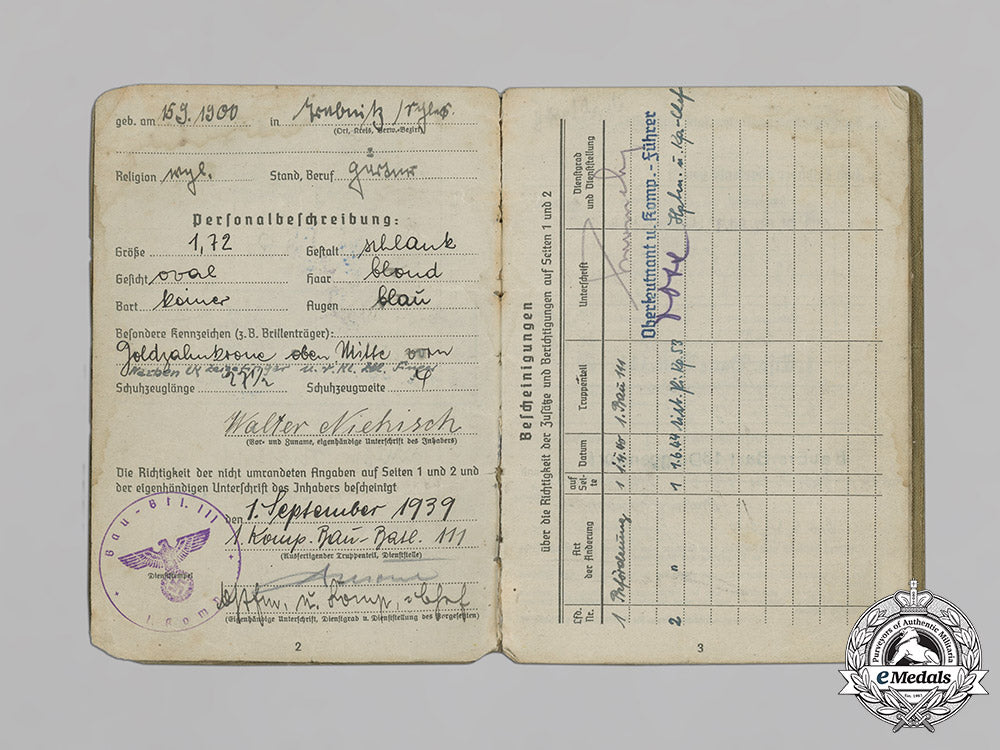 geb. am 15.9.1900 in Trebnitz / Schles.
(Ort, Kreis, Verw.-Bezirk)
Religion evgl. Stand, Beruf Gärtner
Personalbeschreibung:
Größe 1,72 Gestalt schlank
Gesicht oval Haar blond
Bart keiner Augen blau
Besondere Kennzeichen (z.B. Brillenträger):
Goldzahnkrone oben Mitte vorn
Narben
Schuhzeuglänge 27½ Schuhzeugweite 4
Walter Niekisch
(Vor- und Zuname, eigenhändige Unterschrift des Inhabers)
Die Richtigkeit der nicht umrandeten Angaben auf Seiten 1 und 2 und
der eigenhändigen Unterschrift des Inhabers bescheinigt
den 1. September 1939
1. Komp. Bau-Batl. 111
(Ausfertigender Truppenteil, Dienststelle)
Hptm. u. Komp.-Chef
(Eigenhändige Unterschrift, Dienstgrad u. Dienststellung des Vorgesetzten)
Bau-Btl. 111
Dienststempel
1. Komp.
2
Bescheinigungen
über die Richtigkeit der Zusätze und Berichtigungen auf Seiten 1 und 2
Lfd. Nr. Art der Änderung auf Seite Datum Truppenteil Unterschrift Dienstgrad und Dienststellung
1 Beförderung 1 1. Bau 111
Oberleutnant u. Komp.-Führer
2 " 1 1.6.44 Hptm. u. Kp.-Chef
3
Purveyors of Authentic Militaria
eMedals